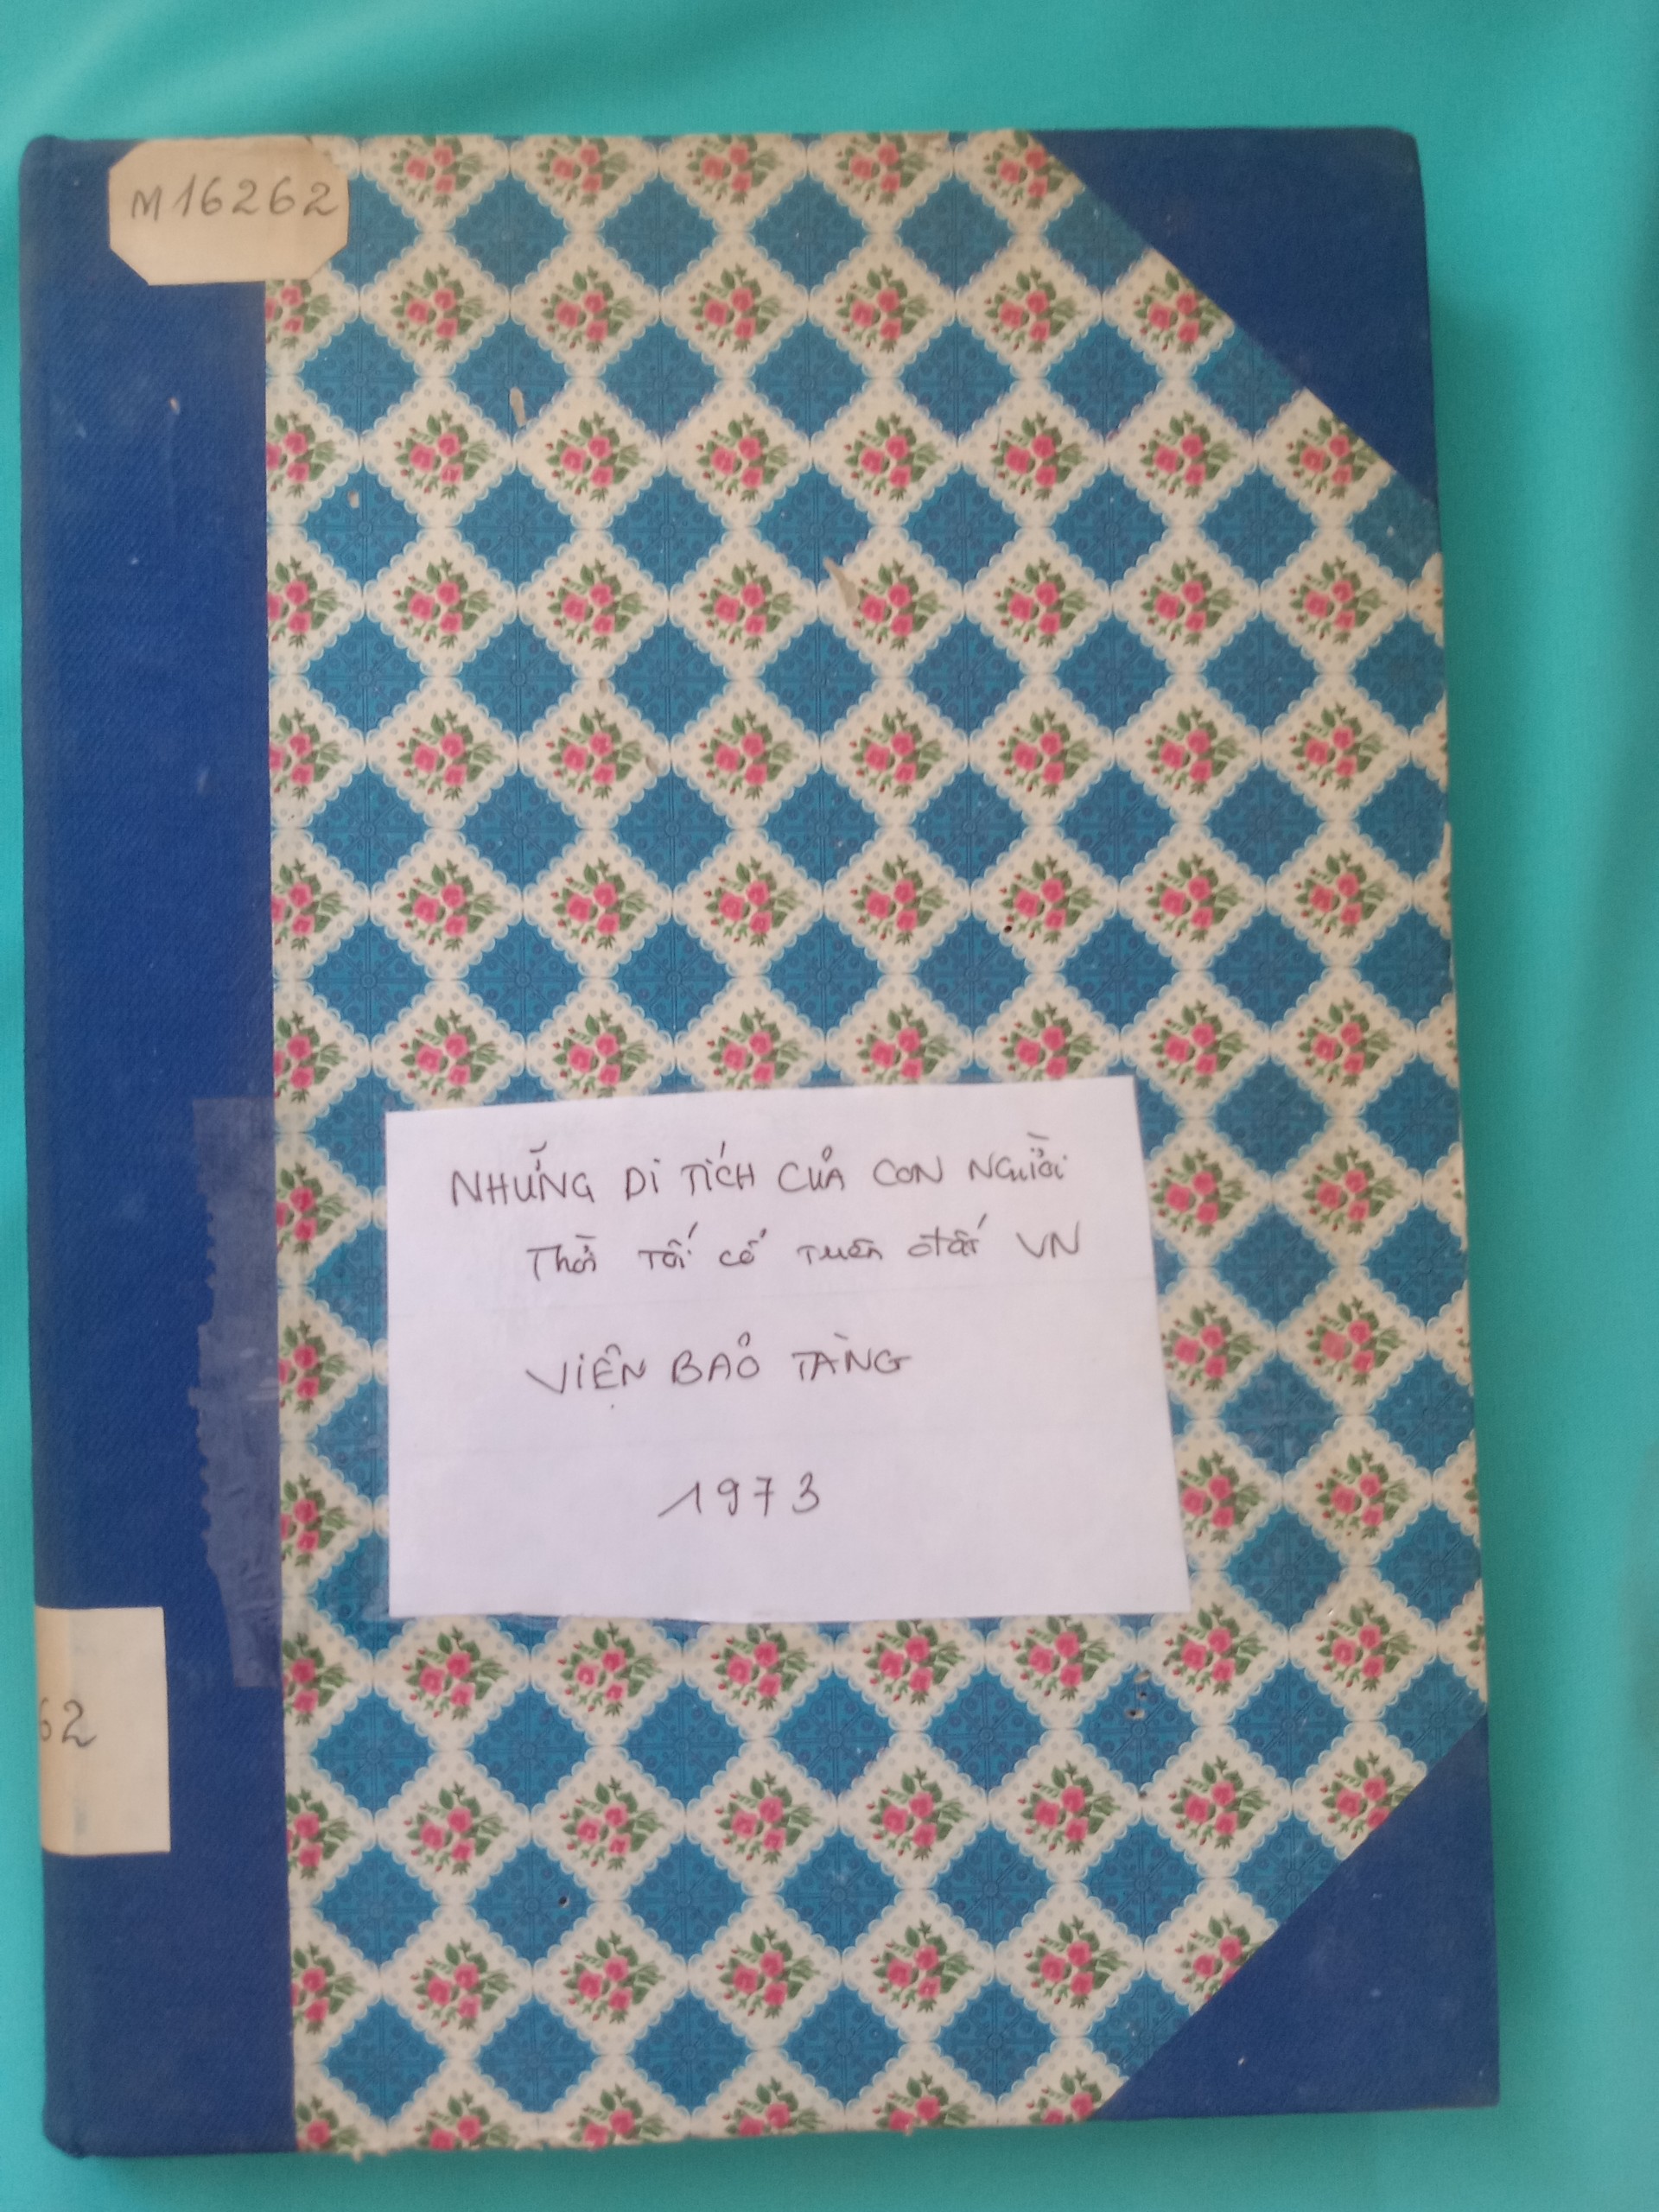 M16262
NHỮNG Di TÍCH CỦA CON NGƯỜi
Thời Tối cổ TRên đất VN
ViỆN BẢO TÀNG
1973
62